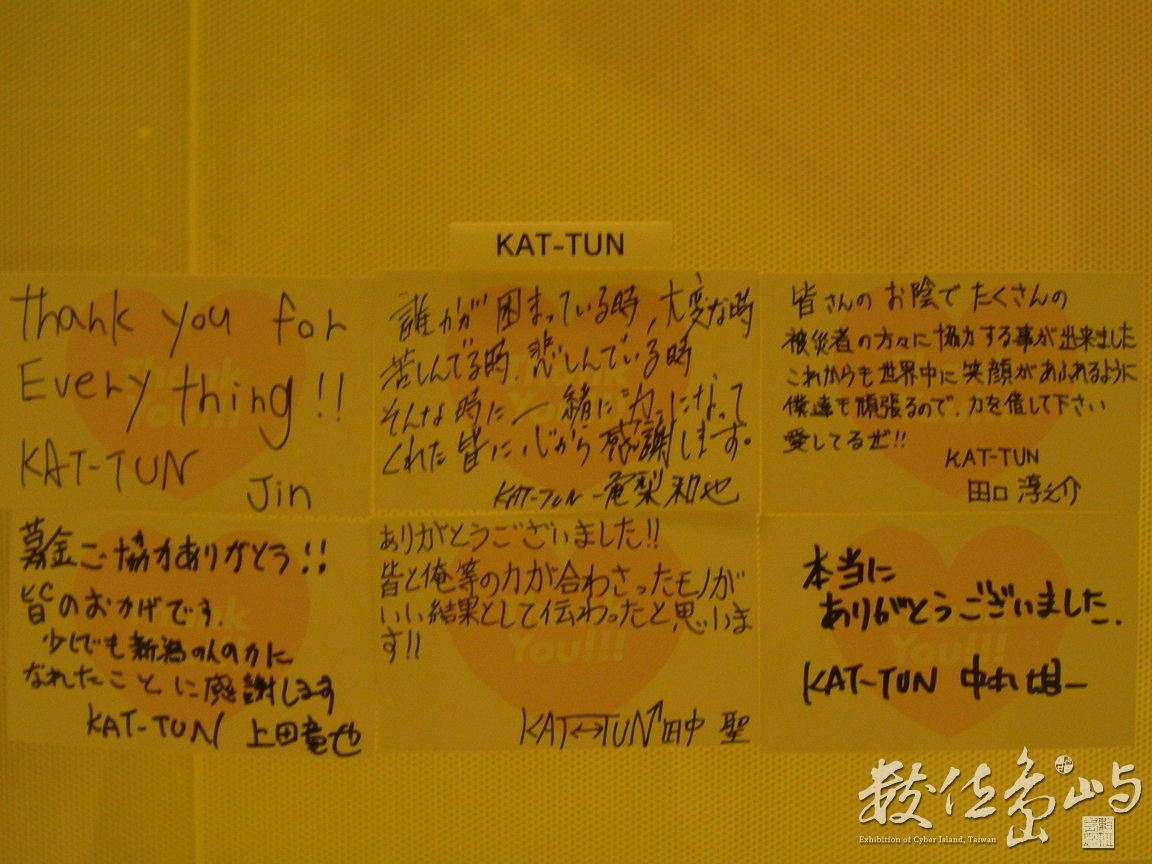 KAT-TUN
Thank you for
Every thing!!
KAT-TUN
Jin
誰かが困まっている時、大変な時
苦しんでる時、悲しんでいる時
そんな時に一緒に力になって
くれた皆に心から感謝します。
KAT-TUN 亀梨和也
皆さんのお陰でたくさんの
被災者の方々に協力する事が出来ました
これからも世界中に笑顔があふれるように
僕達も頑張るので、力を借して下さい
愛してるぜ!!
KAT-TUN
田口 淳之介
募金ご協力ありがとう!!
皆のおかげです.
少しでも新潟の人の力に
なれたことに感謝します
KAT-TUN 上田竜也
ありがとうございました!!
皆と俺等の力が合わさったモノが
いい結果として伝わったと思いま
す!!
KAT↔TUN 田中 聖
本当に
ありがとうございました.
KAT-TUN 中丸雄一
Thank
You!!!
数位島嶼
Exhibition of Cyber Island, Taiwan